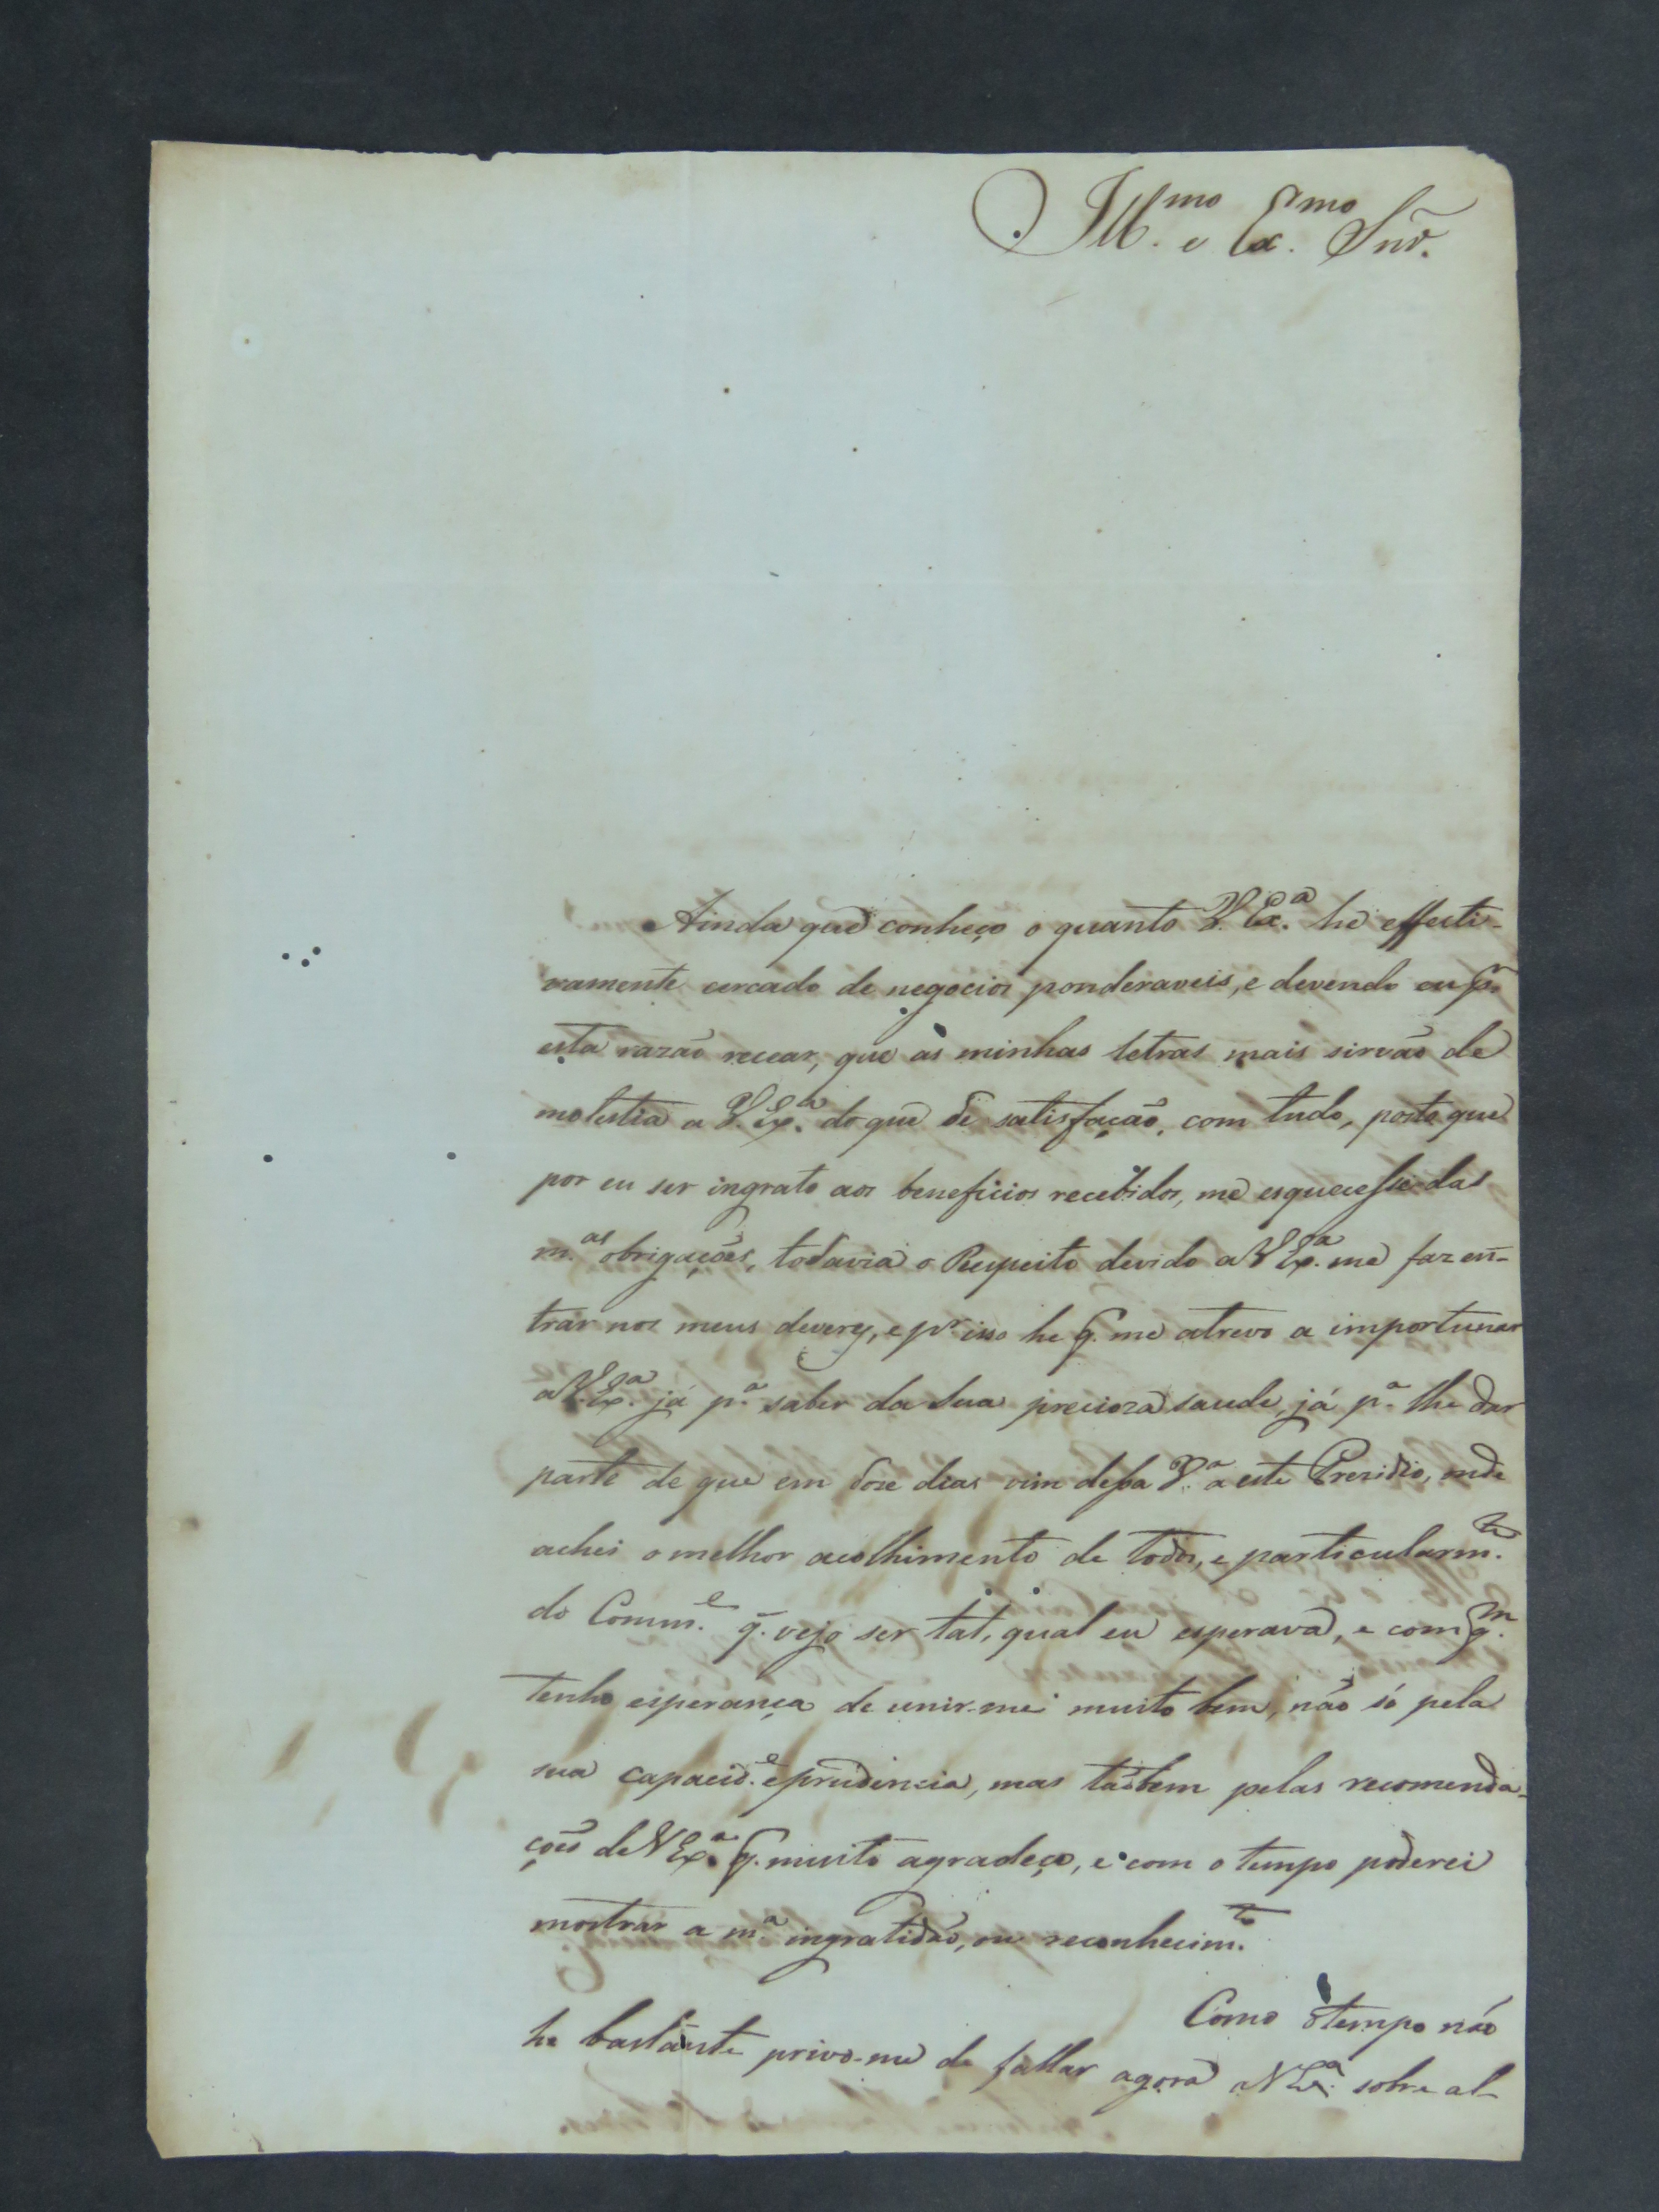 Ill.mo e Ex.mo Snr.
Ainda que conheço o quanto V. Ex.a he effecti-
vamente cercado de negocios ponderaveis, e devendo eu p.
esta razão recear, que as minhas letras mais sirvão de
molestia a V. Ex.a do que de satisfação, com tudo, posto que
por eu ser ingrato aos beneficios recebidos, me esquecesse das
m.as obrigações, todavia o Respeito devido a V Ex.a me faz en-
trar nos meus deveres, e p.r isso he q. me atrevo a importunar
a V. Ex.a já p.a saber da Sua precioza saude, já p.a lhe dar
parte de que em doze dias vim dessa V.a a este Prezidio, onde
achei o melhor acolhimento de todos, e particularm.te
do Comm.e q. vejo ser tal, qual eu esperava, e com q.m
tenho esperança de unir-me muito bem, não só pela
sua capacid.e e prudencia, mas tãobem pelas recomenda-
ções de V Ex.a q. muito agradeço, e com o tempo poderei
mostrar a m.a ingratidão, ou reconhecim.to
Como o tempo não
he bastante privo-me de fallar agora a V Ex.a sobre al-